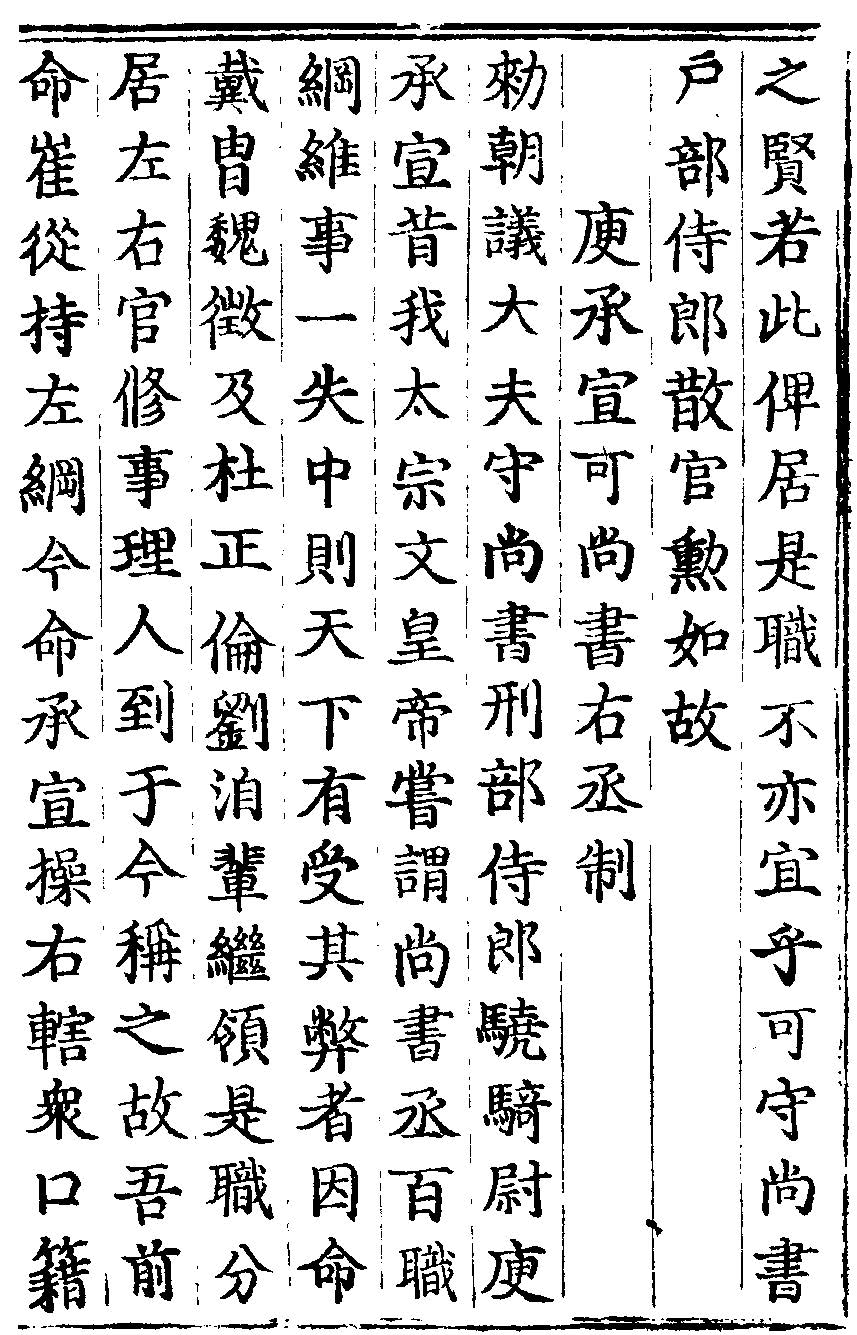 之賢若此俾居是職不亦宜乎可守尚書
戶部侍郎散官勲如故
庾承宣可尚書右丞制
勑朝議大夫守尚書刑部侍郎驍騎尉庾
承宣昔我太宗文皇帝嘗謂尚書丞百職
綱維事一失中則天下有受其弊者因命
戴冑魏徵及杜正倫劉洎輩繼領是職分
居左右官修事理人到于今稱之故吾前
命崔從持左綱今命承宣操右轄衆口籍